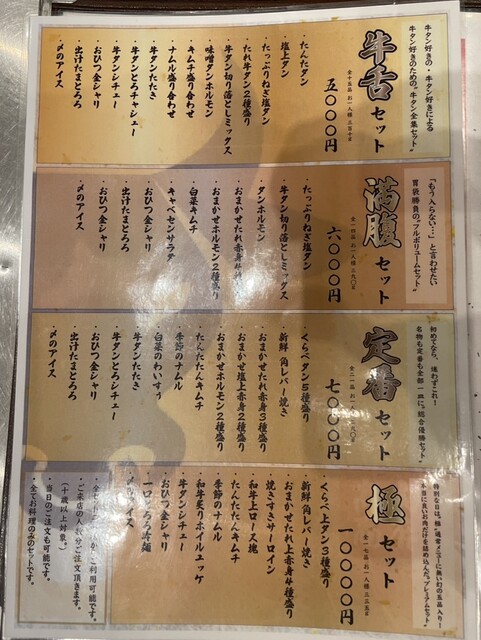 牛タン好きの・牛タン好きによる
牛タン好きのための“牛タン全集セット”
牛舌セット
五〇〇〇円
・たんたタン
・塩上タン
・たっぷりねぎ塩タン
・たれ牛タン2種盛り
・牛タン切り落としミックス
・味噌タンホルモン
・キムチ盛り合わせ
・ナムル盛り合わせ
・牛タンたたき
・牛タンとろチャシュー
・牛タンシチュー
・おひつ金シャリ
・出汁たまとろろ
・〆のアイス
「もう入らない…！」と言わせたい
胃袋勝負の“フルボリュームセット”
満腹セット
六〇〇〇円
・たっぷりねぎ塩タン
・牛タン切り落としミックス
・タンホルモン
・おまかせたれ赤身4種盛り
・おまかせホルモン2種盛り
・白菜キムチ
・キャベセンサラダ
・おひつ金シャリ
・出汁たまとろろ
・〆のアイス
初めてなら、迷わずこれ！
名物も定番も全部一皿に。“総合優勝セット”
定番セット
七〇〇〇円
・くらべタン5種盛り
・新鮮 角レバー焼き
・おまかせたれ赤身3種盛り
・おまかせ塩上赤身2種盛り
・おまかせホルモン2種盛り
・たんたんキムチ
・季節のナムル
・白菜のわいすぅ
・牛タンたたき
・牛タンとろシチュー
・おひつ金シャリ
・出汁たまとろろ
・〆のアイス
極セット
一〇〇〇〇円
・くらべ上タン3種盛り
・新鮮 角レバー焼き
・おまかせたれ上赤身4種盛り
・焼きすきサーロイン
・和牛上ロース塊
・たんたんキムチ
・季節のナムル
・和牛炙りホイルユッケ
・牛タンシチュー
・おひつ金シャリ
・一口とろろ吟麺
・〆のアイス
ご利用可能です。
・ご来店の人数分ご注文頂きます。
（十歳以上対象。）
・当日のご注文も可能です。
・全てお料理のみのセットです。